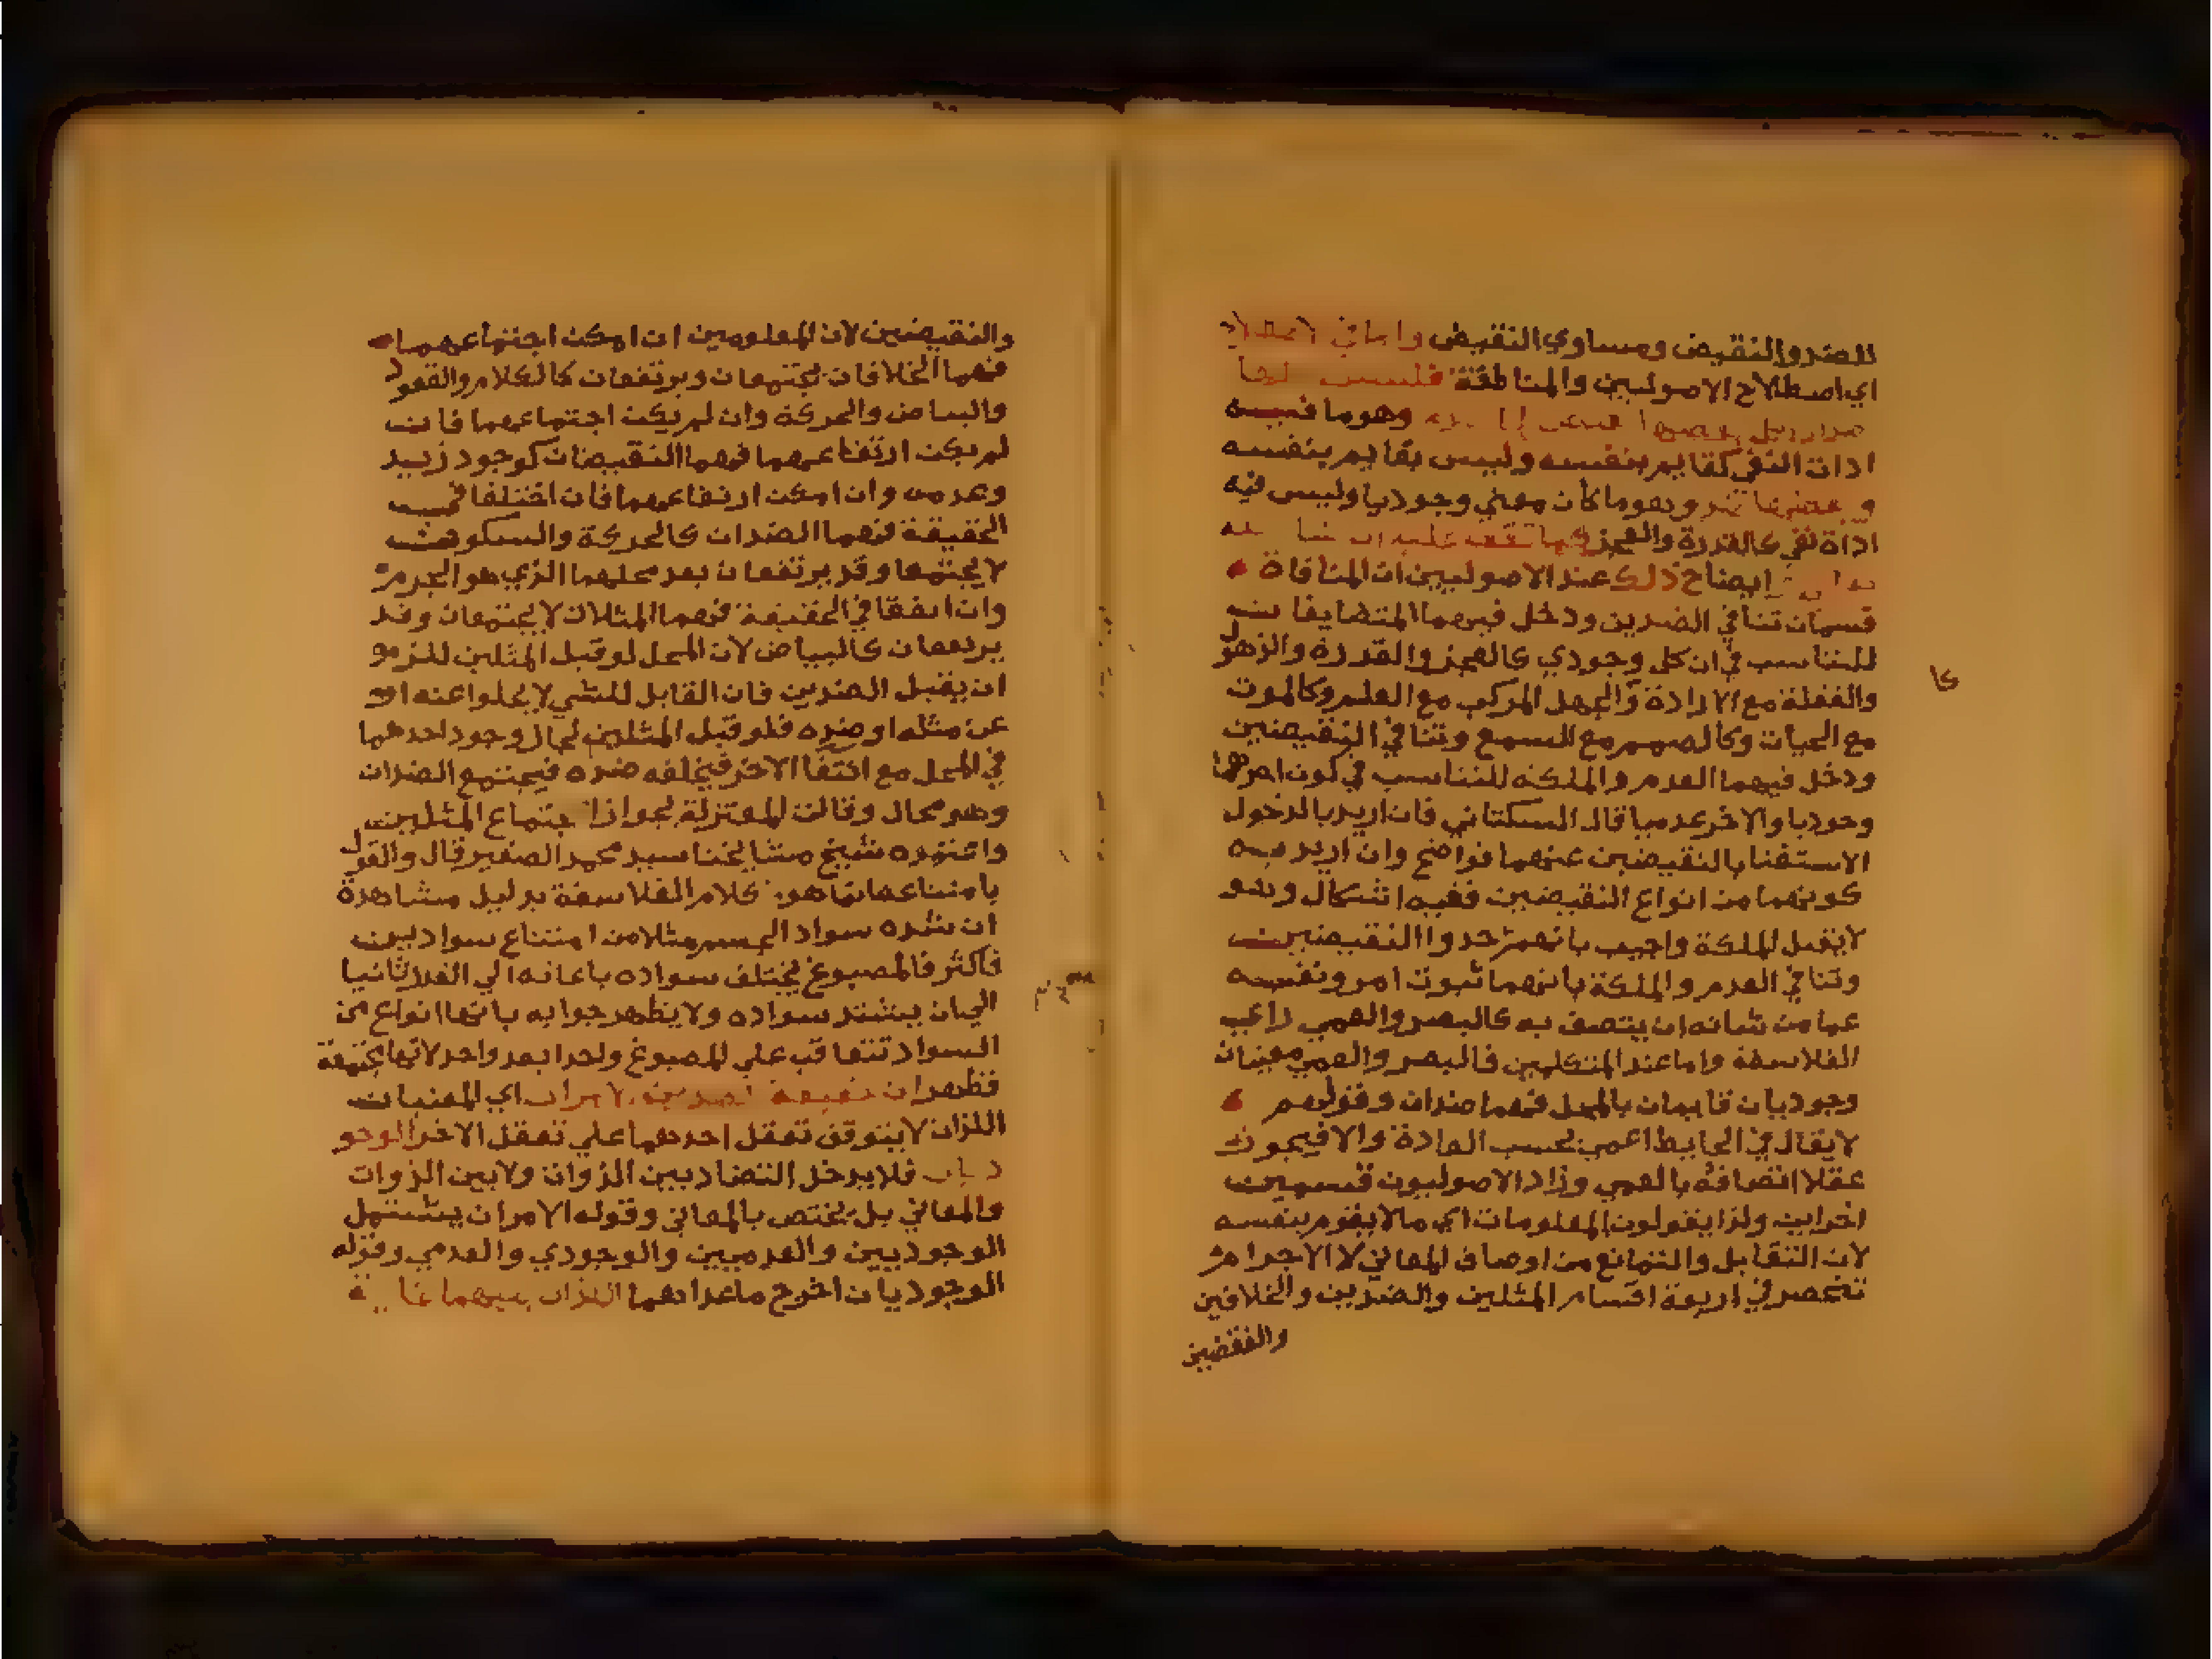 للضد والنقيض ومساوي النقيض واما في الاصطلاح
اي اصطلاح الاصوليين والمناطقة فليست لها
بل بعضها وهو ما فيه
اداة النفي كقايم بنفسه وليس بقايم بنفسه
وبعضها ضد وهو ما كان معني وجوديا وليس فيه
اداة نفي كالقدرة والعجز كما تقف عليه ان شا الله
ايضاح ذلك عند الاصوليين ان المنافاة
قسمان تنافي الضدين ودخل فيهما المتضايفان
للتناسب في ان كل وجودي كالعجز والقدرة والذهول
والغفلة مع الارادة والجهل المركب مع العلم وكالموت
مع الحيات وكالصمم مع السمع وتنافي النقيضين
ودخل فيهما العدم والملكة للتناسب في كون احدهما
وجوديا والاخر عدميا قال السكتاني فان اريد بالدخول
الاستغنا بالنقيضين عنهما فواضح وان اريد به
كونهما من انواع النقيضين ففيه اشكال وهو
لا يقبل الملكة واجيب بانهم حدوا النقيضين
وتنافي العدم والملكة بانهما ثبوت امر ونفيه
عما من شانه ان يتصف به كالبصر والعمي راي
الفلاسفة واما عند المتكلمين فالبصر والعمي معنيان
وجوديان قايمان بالمحل فهما ضدان وقولهم
لا يقال في الحايط اعمي بحسب العادة والا فيجوز
عقلا اتصافه بالعمي وزاد الاصوليون قسمين
اخرين ولذا يقولون المعلومات اي ما لا يقوم بنفسه
لان التقابل والتمانع من اوصاف المعاني لا الاجرام
تنحصر في اربعة اقسام المثلين والضدين والخلافين
والنقيضين
والنقيضين لان المعلومين ان امكن اجتماعهما
فهما الخلافان يجتمعان ويرتفعان كالكلام والقعود
والبياض والحركة وان لم يكن اجتماعهما فان
لم يكن ارتفاعهما فهما النقيضان كوجود زيد
وعدمه وان امكن ارتفاعهما فان اختلفا في
الحقيقة فهما الضدان كالحركة والسكون
لا يجتمعا وقد يرتفعان بعد محلهما الذي هو الجرم
وان اتفقا في الحقيقة فهما المثلان لا يجتمعان وقد
يرتفعان كالبياض لان المحل لو قبل المثلين للزم
ان يقبل الضدين فان القابل للشي لا يخلوا عنه او
عن مثله او ضده فلو قبل المثلين لجاز وجود احدهما
في المحل مع انتفا الاخر فيخلفه ضده فيجتمع الضدان
وهو محال وقالت المعتزلة بجواز اجتماع المثلين
واعتمده شيخ مشايخنا سيد محمد الصغير قال والقول
بامتناعهما هو كلام الفلاسفة بدليل مشاهدة
ان شدة سواد الجسم مثلا من امتناع سوادين
فاكثر فالمصبوغ يختلف سواده باعانه الي القدر ثانيا
الي ان يشتد سواده ولا يظهر جوابه بانها انواع من
السواد تتعاقب علي المصبوغ واحدا بعد واحد لا انها مجتمعة
فظهر ان حقيقة الضدين الامران اي المعنيان
اللذان لا يتوقف تعقل احدهما علي تعقل الاخر الوجو
ديان فلا يدخل التضاد بين الذوات ولا بين الذوات
والمعاني بل يختص بالمعاني وقوله الامران يشتمل
الوجوديين والعدميين والوجودي والعدمي وقوله
الوجوديان اخرج ما عداهما اللذان بينهما غاية